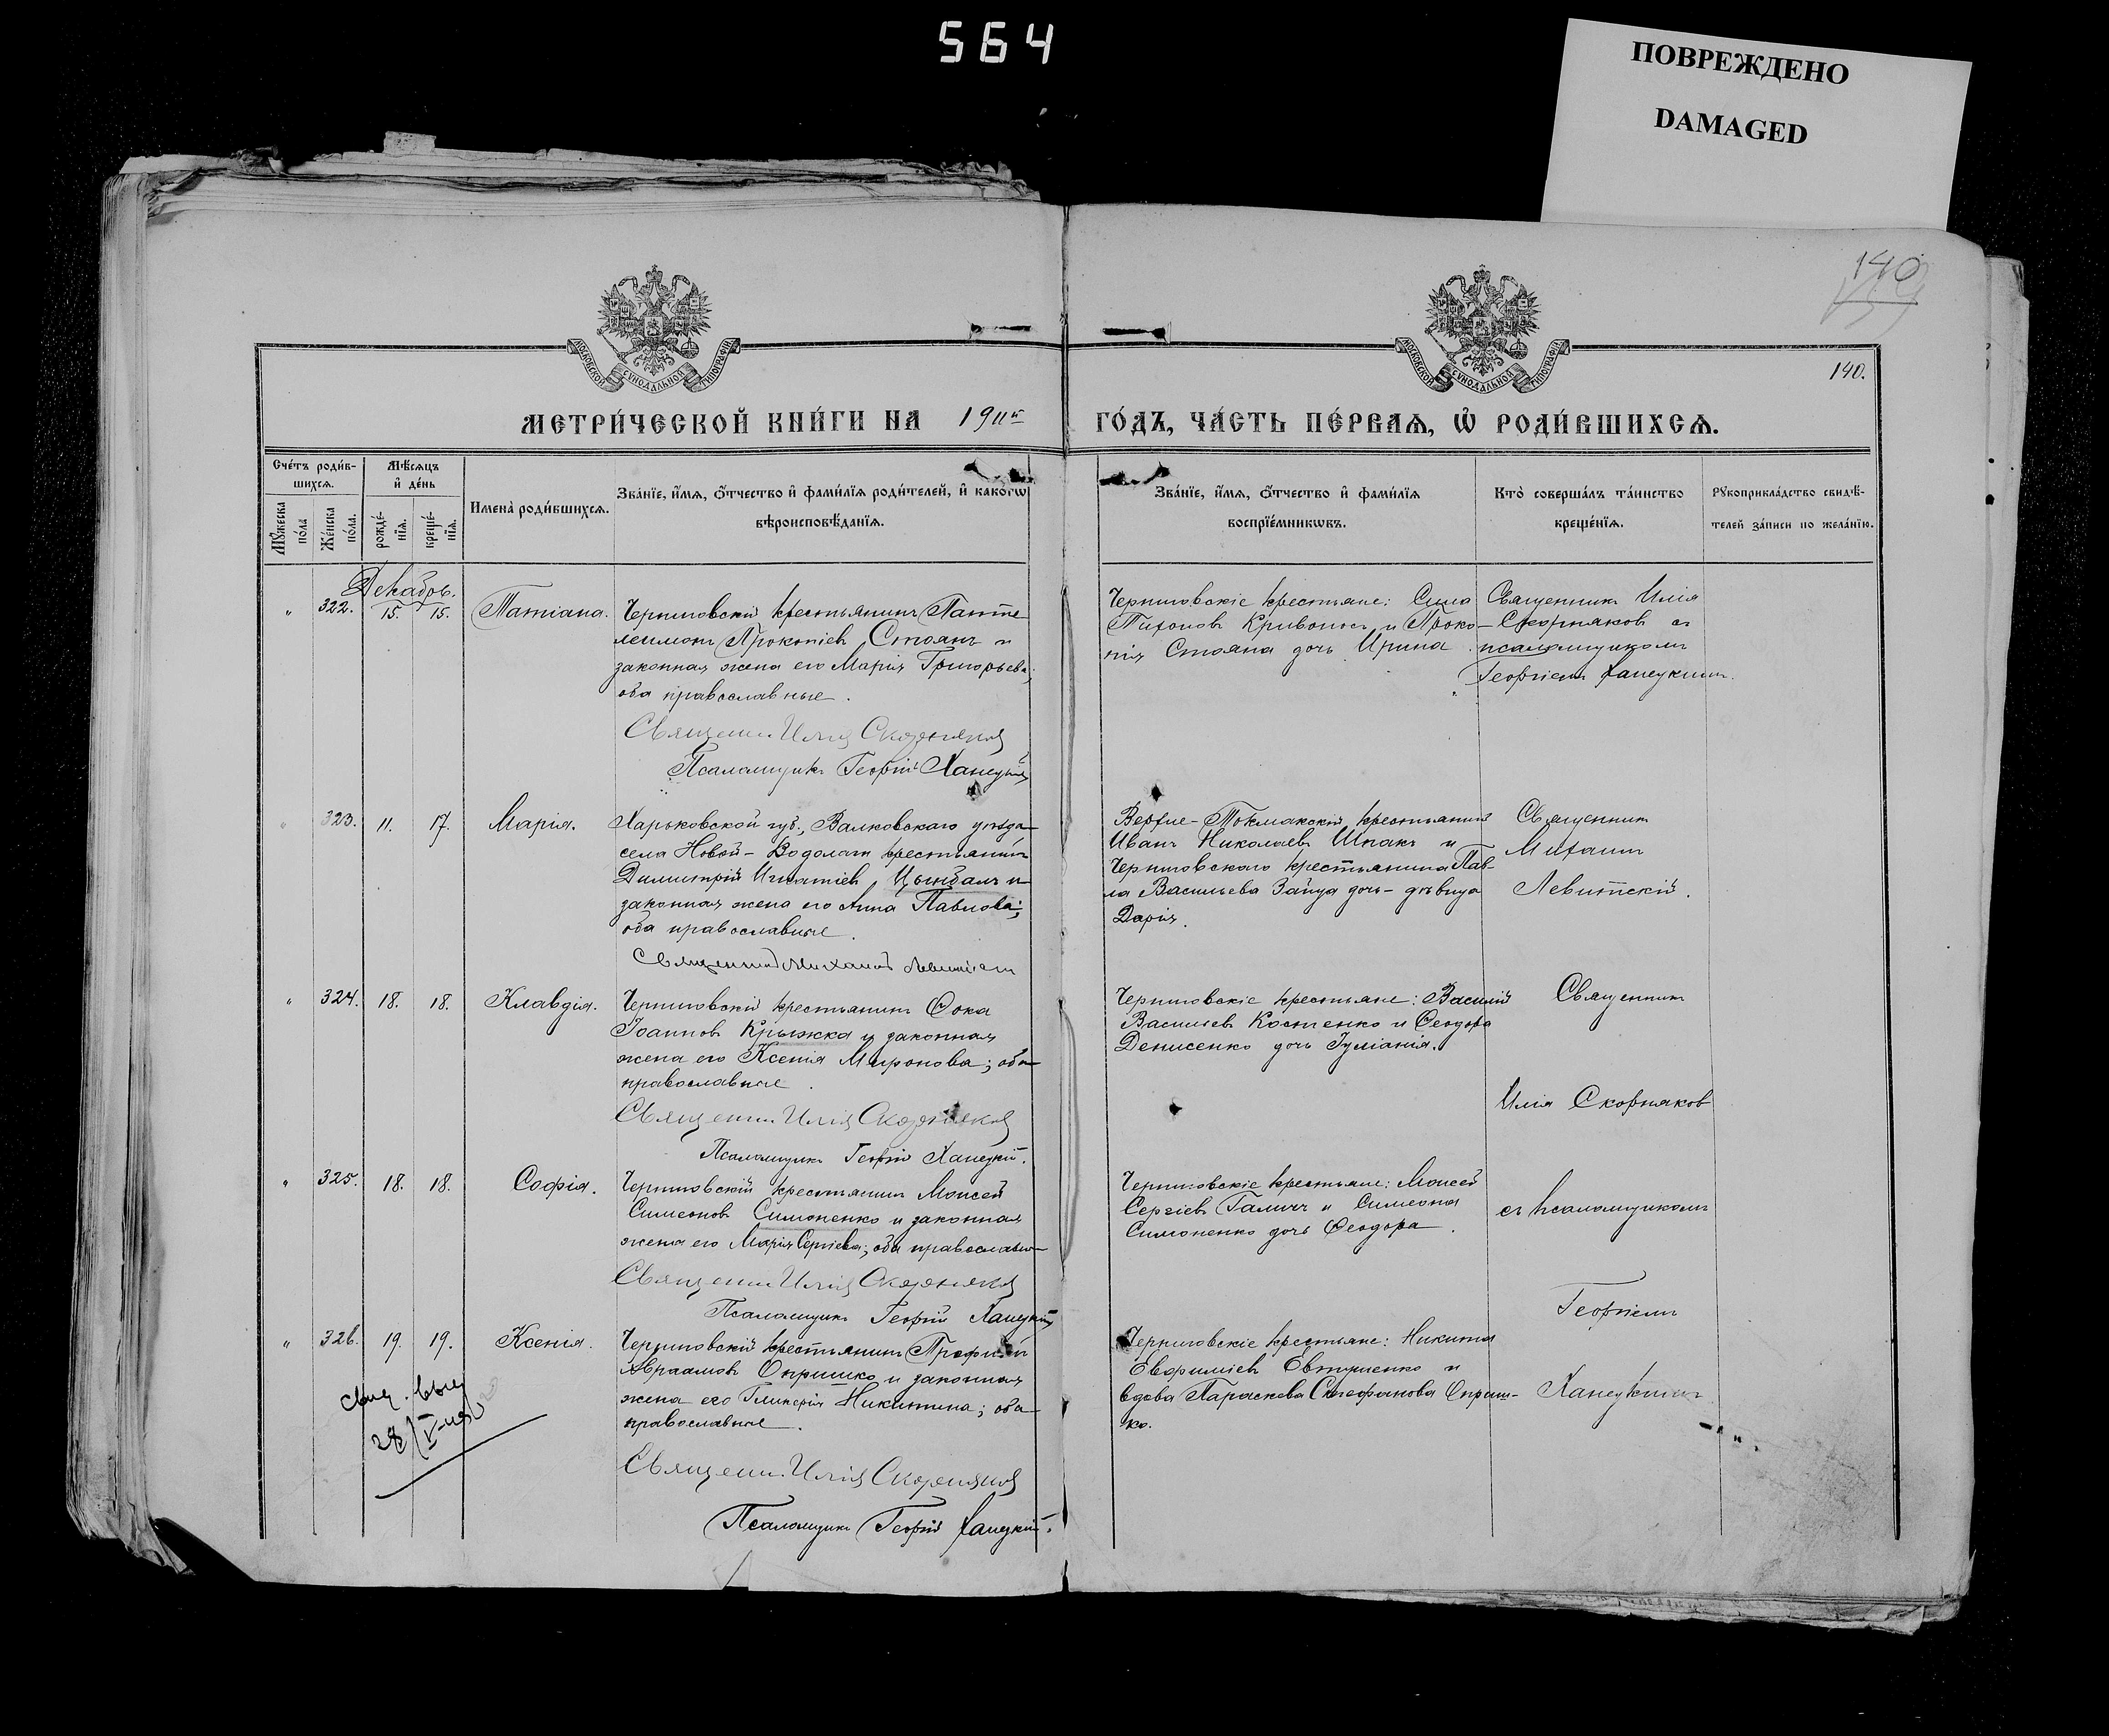 564
ПОВРЕЖДЕНО
DAMAGED
140
140.
МОСКОВСКОЙ СѴНОДАЛЬНОЙ ТИПОГРАФІИ
МОСКОВСКОЙ СѴНОДАЛЬНОЙ ТИПОГРАФІИ
МЕТРИ́ЧЕСКОЙ КНИ́ГИ НА 1911й ГО́ДЪ, ЧА́СТЬ ПЕ́РВАѦ, Ѡ҆ РОДИ́ВШИХСѦ.
Сче́тъ роди́в-
шихсѧ.
Мꙋ́жеска по́ла
Же́нска по́ла.
Мѣ́сѧцъ
и҆ де́нь
рожде́-
нїѧ.
креще́-
нїѧ.
И҆мена̀ роди́вшихсѧ.
Зва́нїе, и҆́мѧ, ѻ҆́тчество и҆ фами́лїѧ роди́телей, и҆ како́гѡ
вѣроисповѣ́данїѧ.
Зва́нїе, и҆́мѧ, ѻ҆́тчество и҆ фами́лїѧ
воспрїе́мникѡвъ.
Кто̀ соверша́лъ та́инство
креще́нїѧ.
Рꙋкоприкла́дство свидѣ́-
телей за́писи по жела́нїю.
Декабрь.
" 322. 15. 15. Татіана.
Черниговскій крестьянинъ Панте-
леимонъ Прокопіевъ Стоянъ и
законная жена его Марія Григорьева;
оба православные.
Священн. Илія Скорняковъ
Псаломщикъ Георгій Ханецкій
Черниговскіе крестьяне: Сила
Тихоновъ Кривоносъ и Проко-
пія Стояна дочь Ирина.
Священникъ Илія
Скорняковъ съ
псаломщикомъ
Георгіемъ Ханецкимъ.
" 323. 11. 17. Марія.
Харьковской губ., Валковскаго уѣзда
села Новой-Водолаги крестьянинъ
Димитрій Игнатіевъ Цымбалъ и
законная жена его Анна Павлова;
оба православные.
Священникъ Михаилъ Левитскій
Верхне-Токмакскій крестьянинъ
Иванъ Николаевъ Шпакъ и
Черниговскаго крестьянина Пав-
ла Васильева Зайца дочь-дѣвица
Дарія.
Священникъ
Михаилъ
Левитскій.
" 324. 18. 18. Клавдія.
Черниговскій крестьянинъ Ѳока
Іоанновъ Крыжка и законная
жена его Ксенія Миронова; оба
православные.
Священн. Илія Скорняковъ
Псаломщикъ Георгій Ханецкій.
Черниговскіе крестьяне: Василій
Васильевъ Костенко и Ѳеодора
Денисенко дочь Іуліанія.
Священникъ
Илія Скорняковъ
" 325. 18. 18. Софія.
Черниговскій крестьянинъ Моисей
Симеоновъ Симоненко и законная
жена его Марія Сергіева; оба православн.
Священн. Илія Скорняковъ
Псаломщикъ Георгій Ханецкій
Черниговскіе крестьяне: Моисей
Сергіевъ Галичъ и Симеона
Симоненко дочь Ѳеодора.
съ псаломщикомъ
Георгіемъ
" 326. 19. 19. Ксенія.
Черниговскій крестьянинъ Трофимъ
Авраамовъ Опришко и законная
жена его Гликерія Никитина; оба
православные.
Священн. Илія Скорняковъ
Псаломщикъ Георгій Ханецкій.
Черниговскіе крестьяне: Никита
Евфиміевъ Евтушенко и
вдова Параскева Стефанова Оприш-
ко.
Ханецкимъ
свид. выд
28/V